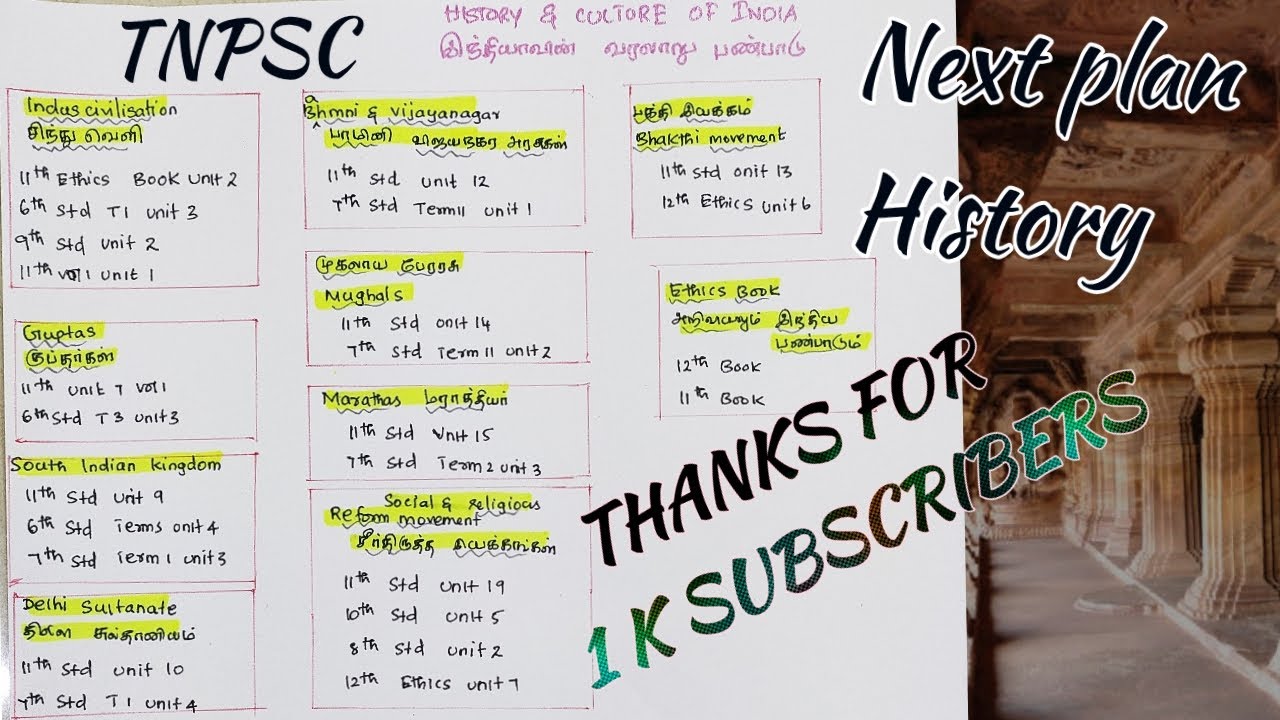 TNPSC
HISTORY & CULTURE OF INDIA
இந்தியாவின் வரலாறு பண்பாடு
Next plan
History
Indus civilisation
சிந்து வெளி
11th Ethics Book unit 2
6th Std T1 unit 3
9th Std unit 2
11th vol 1 unit 1
Guptas
குப்தர்கள்
11th unit 7 vol 1
6th Std T3 unit 3
South Indian kingdom
11th Std unit 9
6th Std Terms unit 4
7th Std Term 1 unit 3
Delhi Sultanate
தில்லி சுல்தானியம்
11th Std unit 10
7th Std T1 unit 4
Bhmni & vijayanagar
பாமினி விஜயநகர அரசுகள்
11th Std unit 12
7th Std Term 11 unit 1
முகலாய பேரரசு
Mughals
11th Std unit 14
7th Std Term 11 unit 2
Marathas மராத்தியர்
11th Std unit 15
7th Std Term 2 unit 3
Social & religious
Reform movement
சீர்திருத்த இயக்கங்கள்
11th Std unit 19
10th Std unit 5
8th Std unit 2
12th Ethics unit 7
பக்தி இயக்கம்
Bhakthi movement
11th Std unit 13
12th Ethics unit 6
Ethics Book
அறவியலும் இந்திய
பண்பாடும்
12th Book
11th Book
THANKS FOR
1 K SUBSCRIBERS